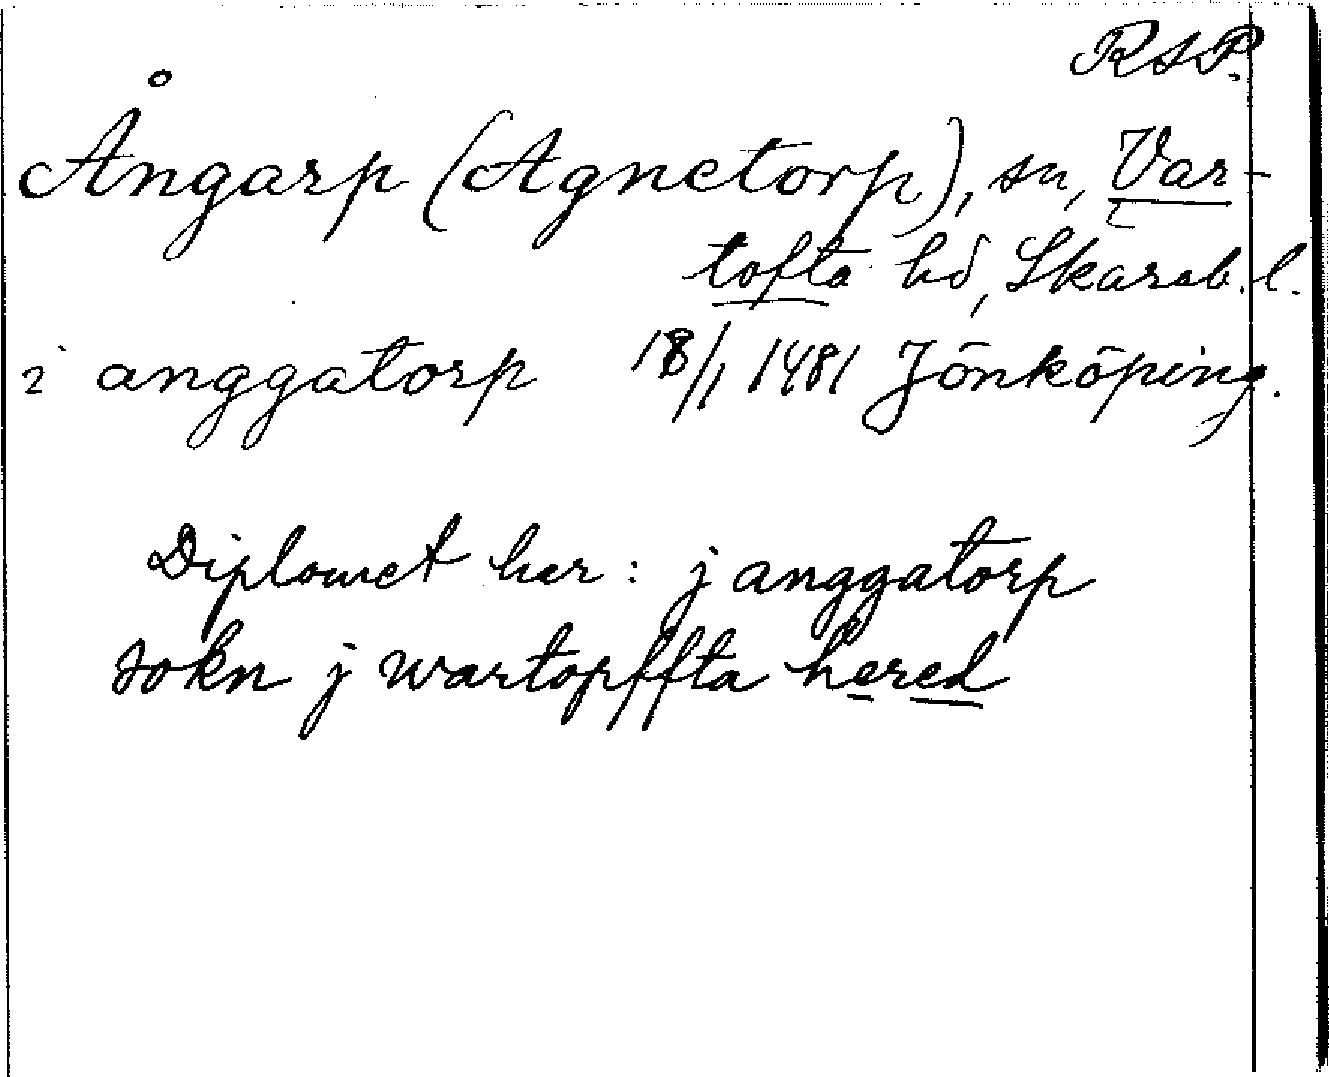 RAP.
Ångarp (Agnetorp), sn, Var-
tofta hd, Skarab. l.
i anggatorp 18/1 1481 Jönköping.
Diplomet har: j anggatorp
sokn j wartopffta hered